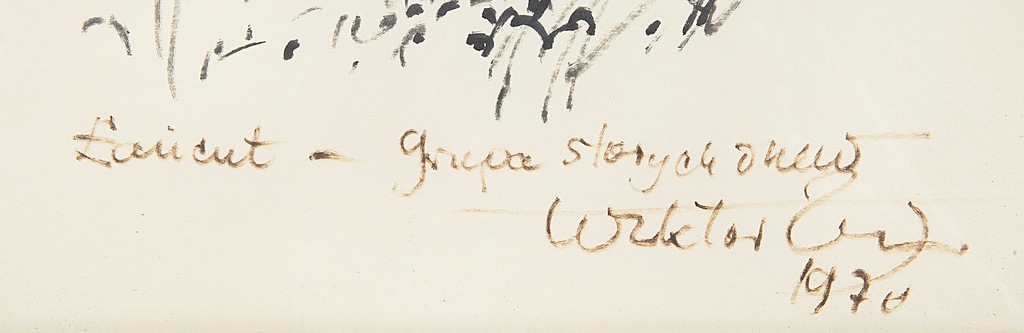 Łańcut - grupa starych drzew
Wiktor
1970